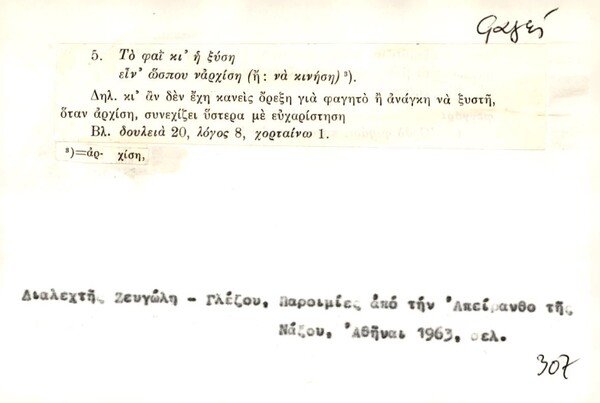 φαγεί
5. Τὸ φαῒ κι' ἡ ξύση
εἶν' ὥσπου νἀρχίση (ἤ: νὰ κινήση) ³).
Δηλ. κι' ἂν δὲν ἔχη κανεὶς ὄρεξη γιὰ φαγητὸ ἢ ἀνάγκη νὰ ξυστῆ,
ὅταν ἀρχίση, συνεχίζει ὕστερα μὲ εὐχαρίστηση
Βλ. δουλειὰ 20, λόγος 8, χορταίνω 1.
³)=ἀρ- χίση,
Διαλεχτῆς Ζευγώλη - Γλέζου, Παροιμίες ἀπό τήν Ἀπείρανθο τῆς
Νάξου, Ἀθῆναι 1963, σελ.
307